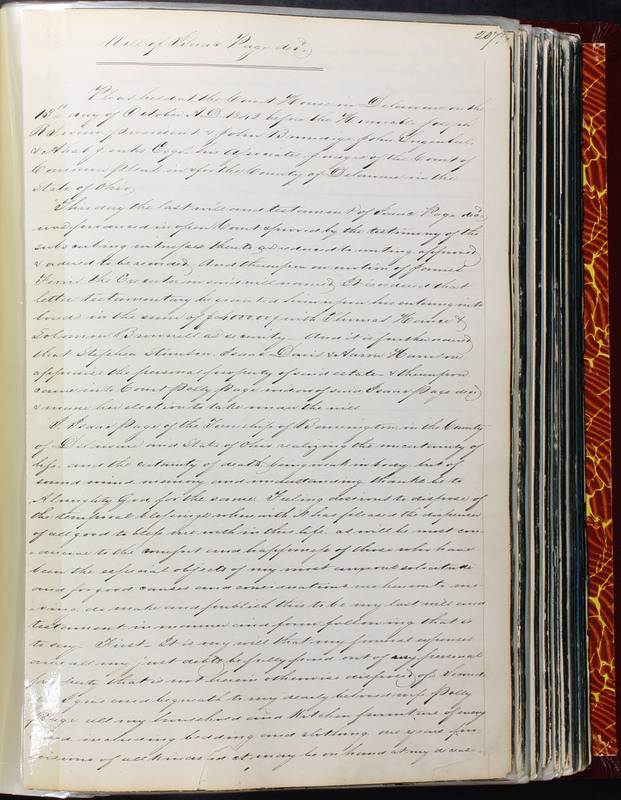 207
Will of Isaac Page decd
Pleas held at the Court House in Delaware on the
13th day of October A.D. 1842 before the Honorable Joseph
R Swan president & John Brundige John
& Esqrs his Associates Judges of the Court of
Common pleas in & for the County of Delaware in the
State of Ohio
This day the last will and testament of Isaac Page decd
was produced in open Court & proved by the testimony of the
subscribing witnesses thereto & reduced to writing approved
& ordered to be recorded And thereupon on motion of James
the Executor in said will named It is ordered that
letters testamentary be granted him upon his entering into
bonds in the sum of $4000.00 with Thomas &
Solomon as security And it is further ordered
that Stephen Stinson Isaac Davis & Aaron
appraise the personal property of said estate & thereupon
came into Court Polly Page widow of said Isaac Page decd
& made her election to take under the will
I Isaac Page of the Township of Bennington in the County
of Delaware and State of Ohio realizing the uncertainty of
life and the certainty of death being weak in body but of
sound mind memory and understanding thanks be to
Almighty God for the same Feeling desirous to dispose of
the temporal blessings wherewith it has pleased the dispenser
of all good to bless me with in this life as will be most con-
ducive to the comfort and happiness of those who have
been the especial objects of my most anxious solicitude
and for good causes and considerations me hereunto mo-
ving do make and publish this to be my last will and
testament in manner and form following that is
to say - First - It is my will that my funeral expenses
and all my just debts be fully paid out of any personal
property that is not herein otherwise disposed of Second
I give and bequeath to my dearly beloved wife Polly
Page all my household and Kitchen furniture of every
kind including bedding and clothing one years pro-
visions of all kinds as it may be on hand at my decease